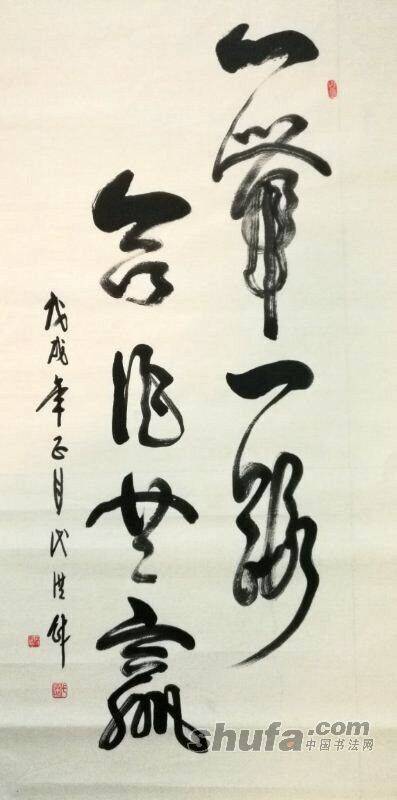 一帶一路
合作共赢
戊戌年正月代洪
shufa.com
中国书法网